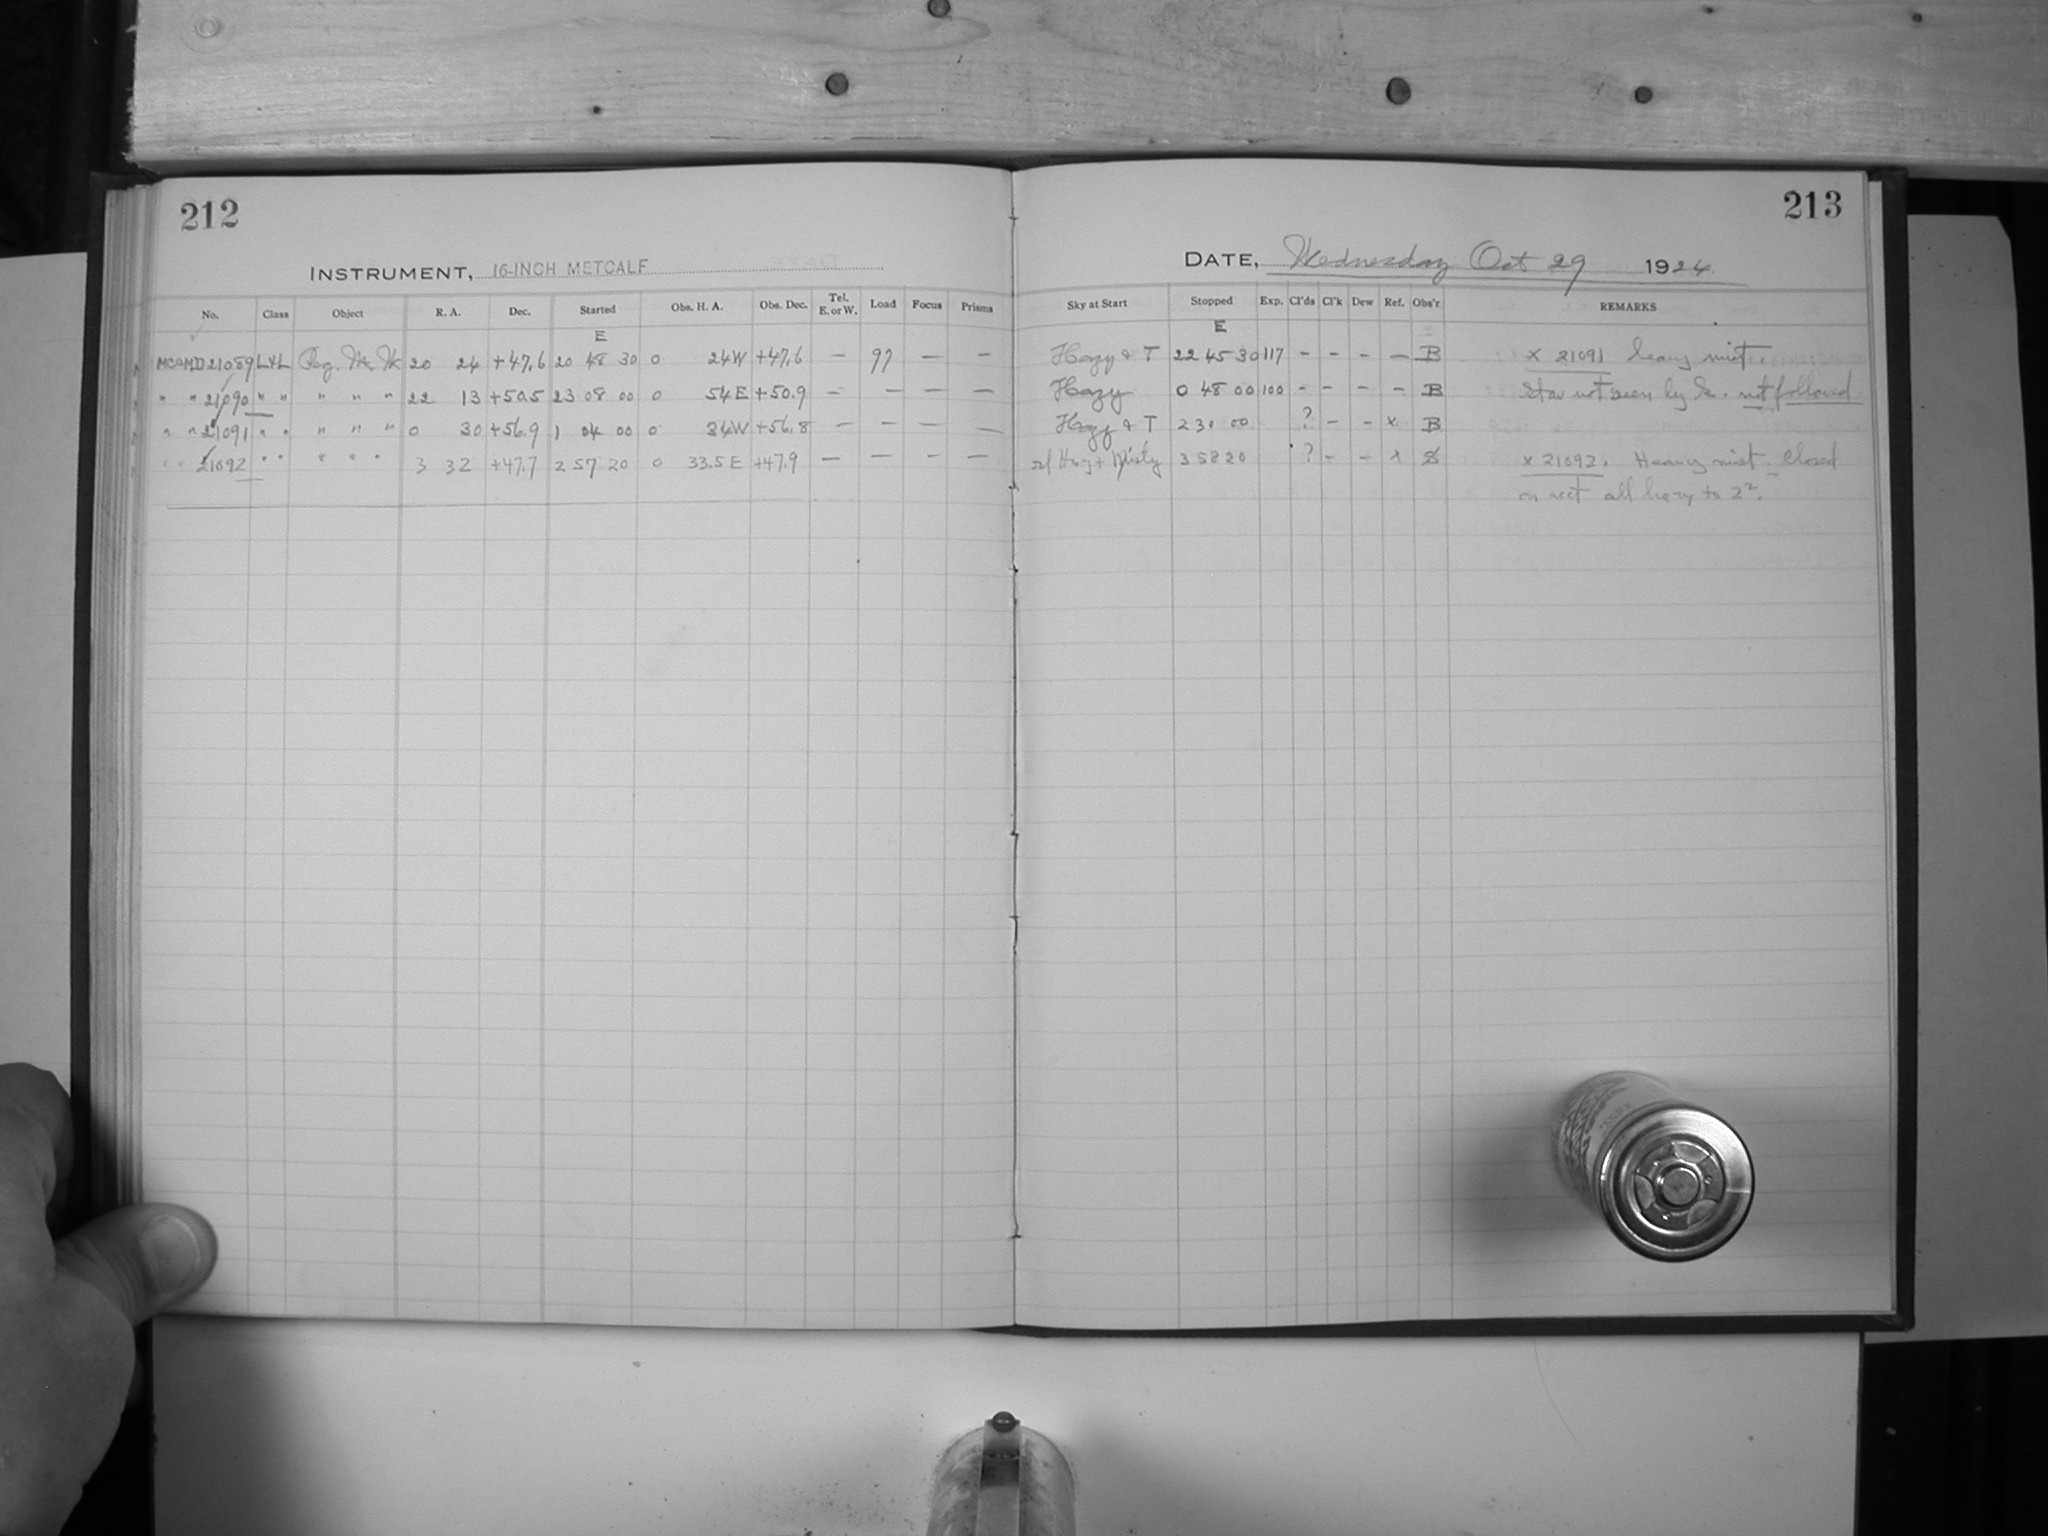 212
213
INSTRUMENT, 16-INCH METCALF
DATE, Wednesday Oct 29 1924.
No. Class Object R. A. Dec. Started Obs. H. A. Obs. Dec. Tel. E. or W. Load Focus Prisms Sky at Start Stopped Exp. Cl'ds Cl'k Dew Ref. Obs'r REMARKS
E E
21089 20 24 +47.6 20 48 30 0 24W +47.6 — 97 — — Hazy & T 22 45 30 117 - - - — B x 21091 heavy mist.
" " 21090 " " " " " 22 13 +50.5 23 08 00 0 54E +50.9 — — — — Hazy 0 48 00 100 - - - - B Star not seen by not followed
" " 21091 " " " " " 0 30 +56.9 1 04 00 0 34W +56.8 — — — — Hazy & T 2 30 00 ? - - x B
" " 21092 " " " " " 3 32 +47.7 2 57 20 0 33.5 E +47.9 — — - — Misty 3 58 20 ? - - x x 21092. Heavy mist. Closed
on acct all hazy to 2².